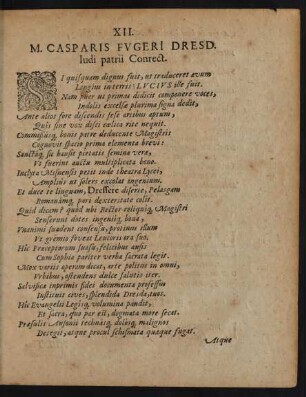 XII.
M. CASPARIS FVGERI DRESD.
ludi patrii Conrect.
SI quisquam dignus fuit, ut traduceret ævum
Longius in terris: LVCIVS iste fuit.
Nam puer ut primas didicit componere voces,
Indolis excelsæ plurima signa dedit,
Ante alios fore discendis sese artibus aptum,
Quîs sine vox disci cælica rite nequit.
Commissusq́; bonis patre deducente Magistris
Cognovit spacio prima elementa brevi:
Sanctaq́; sic hausit pietatis semina veræ,
Ut fuerint auctu multiplicata bono.
Inclyta Misnensis petit inde theatra Lycei,
Amplius ut solers excolat ingenium.
Et duce te linguam, Dressere diserte, Pelasgam
Romanamq́; pari dexteritate colit.
Quid dicam? quod ubi Rector reliquiq́; Magistri
Senserunt dotes ingeniiq́; bona,
Unanimi suadent consensu, protinus illum
Ut gremio foveat Leucoris ora suo.
Hic Præceptorum suasu, felicibus ausis
Cum Sophia pariter verba sacrata legit.
Mox variis operam dicat, arte politus in omni,
Urbibus, ostendens dulce salutis iter.
Salvifica inprimis fidei documenta professus
Instituit cives, splendida Dresda, tuos.
Hic Evangelii Legisq́; volumina pandit,
Et sacra, quo par est, dogmata more secat.
Præsulis Ausonii technasq́; dolosq́; malignos
Detegit, atque procul schismata quæque fugat.
Atque